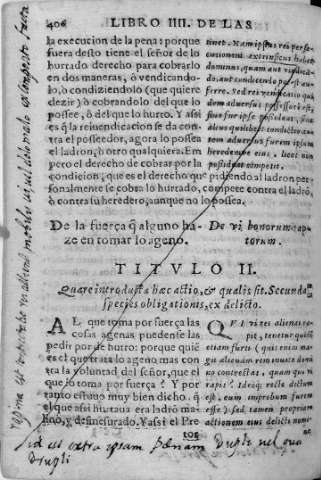 406 LIBRO IIII. DE LAS
la execucion de la pena: porque
fuera desto tiene el señor de lo
hurtado derecho para cobrarlo
en dos maneras, ò vendicando-
lo, ò condiziendolo (que quiere
dezir) ò cobrandolo del que lo
possee, ò del que lo hurto. Y assi
es q̃ la reiuendicacion se da con-
tra el posseedor, agora lo possea
el ladron, ò otro qualquiera. Em
pero el derecho de cobrar por la
condicion, que es el derecho que pidiendo al ladron per-
sonalmente cobra lo hurtado, compete contra el ladrõ,
ò contra su heredero, aunque no lo possea.
tinet. Nam ipsius rei perse-
cutionem extrinsecus habet
dominus, quam aut vindicã-
do, aut condicendo potest au-
ferre. Sed rei vendicatio qui-
dem aduersus possessorem est,
siue fur ipse possideat, siue
alius quilibet: condictio autẽ
tem aduersus furem ipsum,
heredemve eius, licet non
possideat competit.
De la fuerça q̃ alguno ha-
ze en tomar lo ageno.
De vi bonorum rap-
torum.
TITVLO II.
Quare introducta hæc actio, & qualis sit. Secunda
species obligationis, ex delicto.
AL que toma por fuerça las
cosas agenas puedenle las
pedir por de hurto: porque quiẽ
es el que trata lo ageno mas con
tra la voluntad del señor, que el
que lo toma por fuerça? Y por
tanto estuuo muy bien dicho, q̃
el que assi hurtaua era ladrõ ma-
lino, y desmesurado. Y assi el Pre
QVI vi res alienas ra-
pit, tenetur quidẽ
etiam furti (quis enim ma-
gis alienam rem inuito domi-
no contrectat, quam qui vi
rapit? Ideoq; recte dictum
est, eum improbum furem
esse) sed tamen propriam
actionem eius delicti nomi-
tor
id est extra ipsam pœnam dupli vel qua
drupli